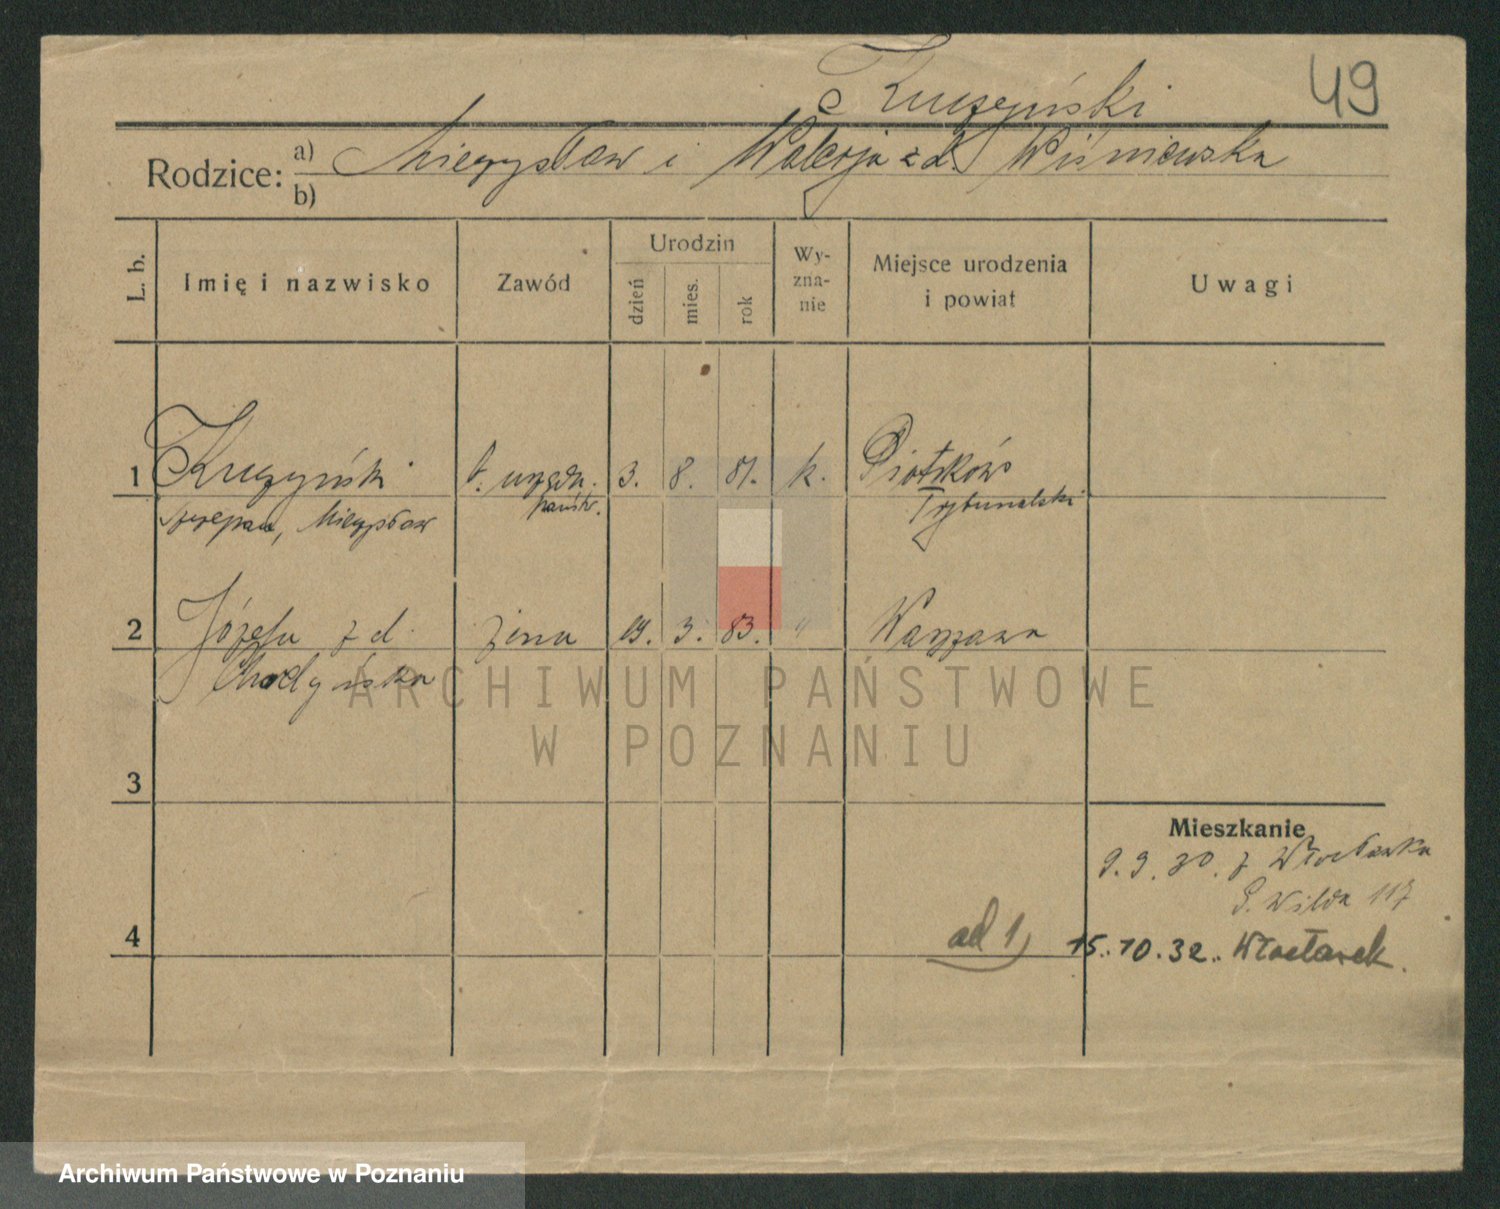 Kruszyński
49
Rodzice: a) Mieczysław i Walerja z d. Wiśniewska
b)
L. b.
Imię i nazwisko
Zawód
Urodzin
dzień
mies.
rok
Wy-
zna-
nie
Miejsce urodzenia
i powiat
Uwagi
1 Kruszyński urzędn. 3. 8. 81. k. Piotrków
Szczepan, Mieczysław państw. Trybunalski
2 Józefa z d. żona 19. 3. 83. " Warszawa
Chodyńska
3
Mieszkanie
9.9.30. z Włocławka
G. Wilda 117
4 ad 1) 15.10.32. Włocławek.
ARCHIWUM PAŃSTWOWE
W POZNANIU
Archiwum Państwowe w Poznaniu